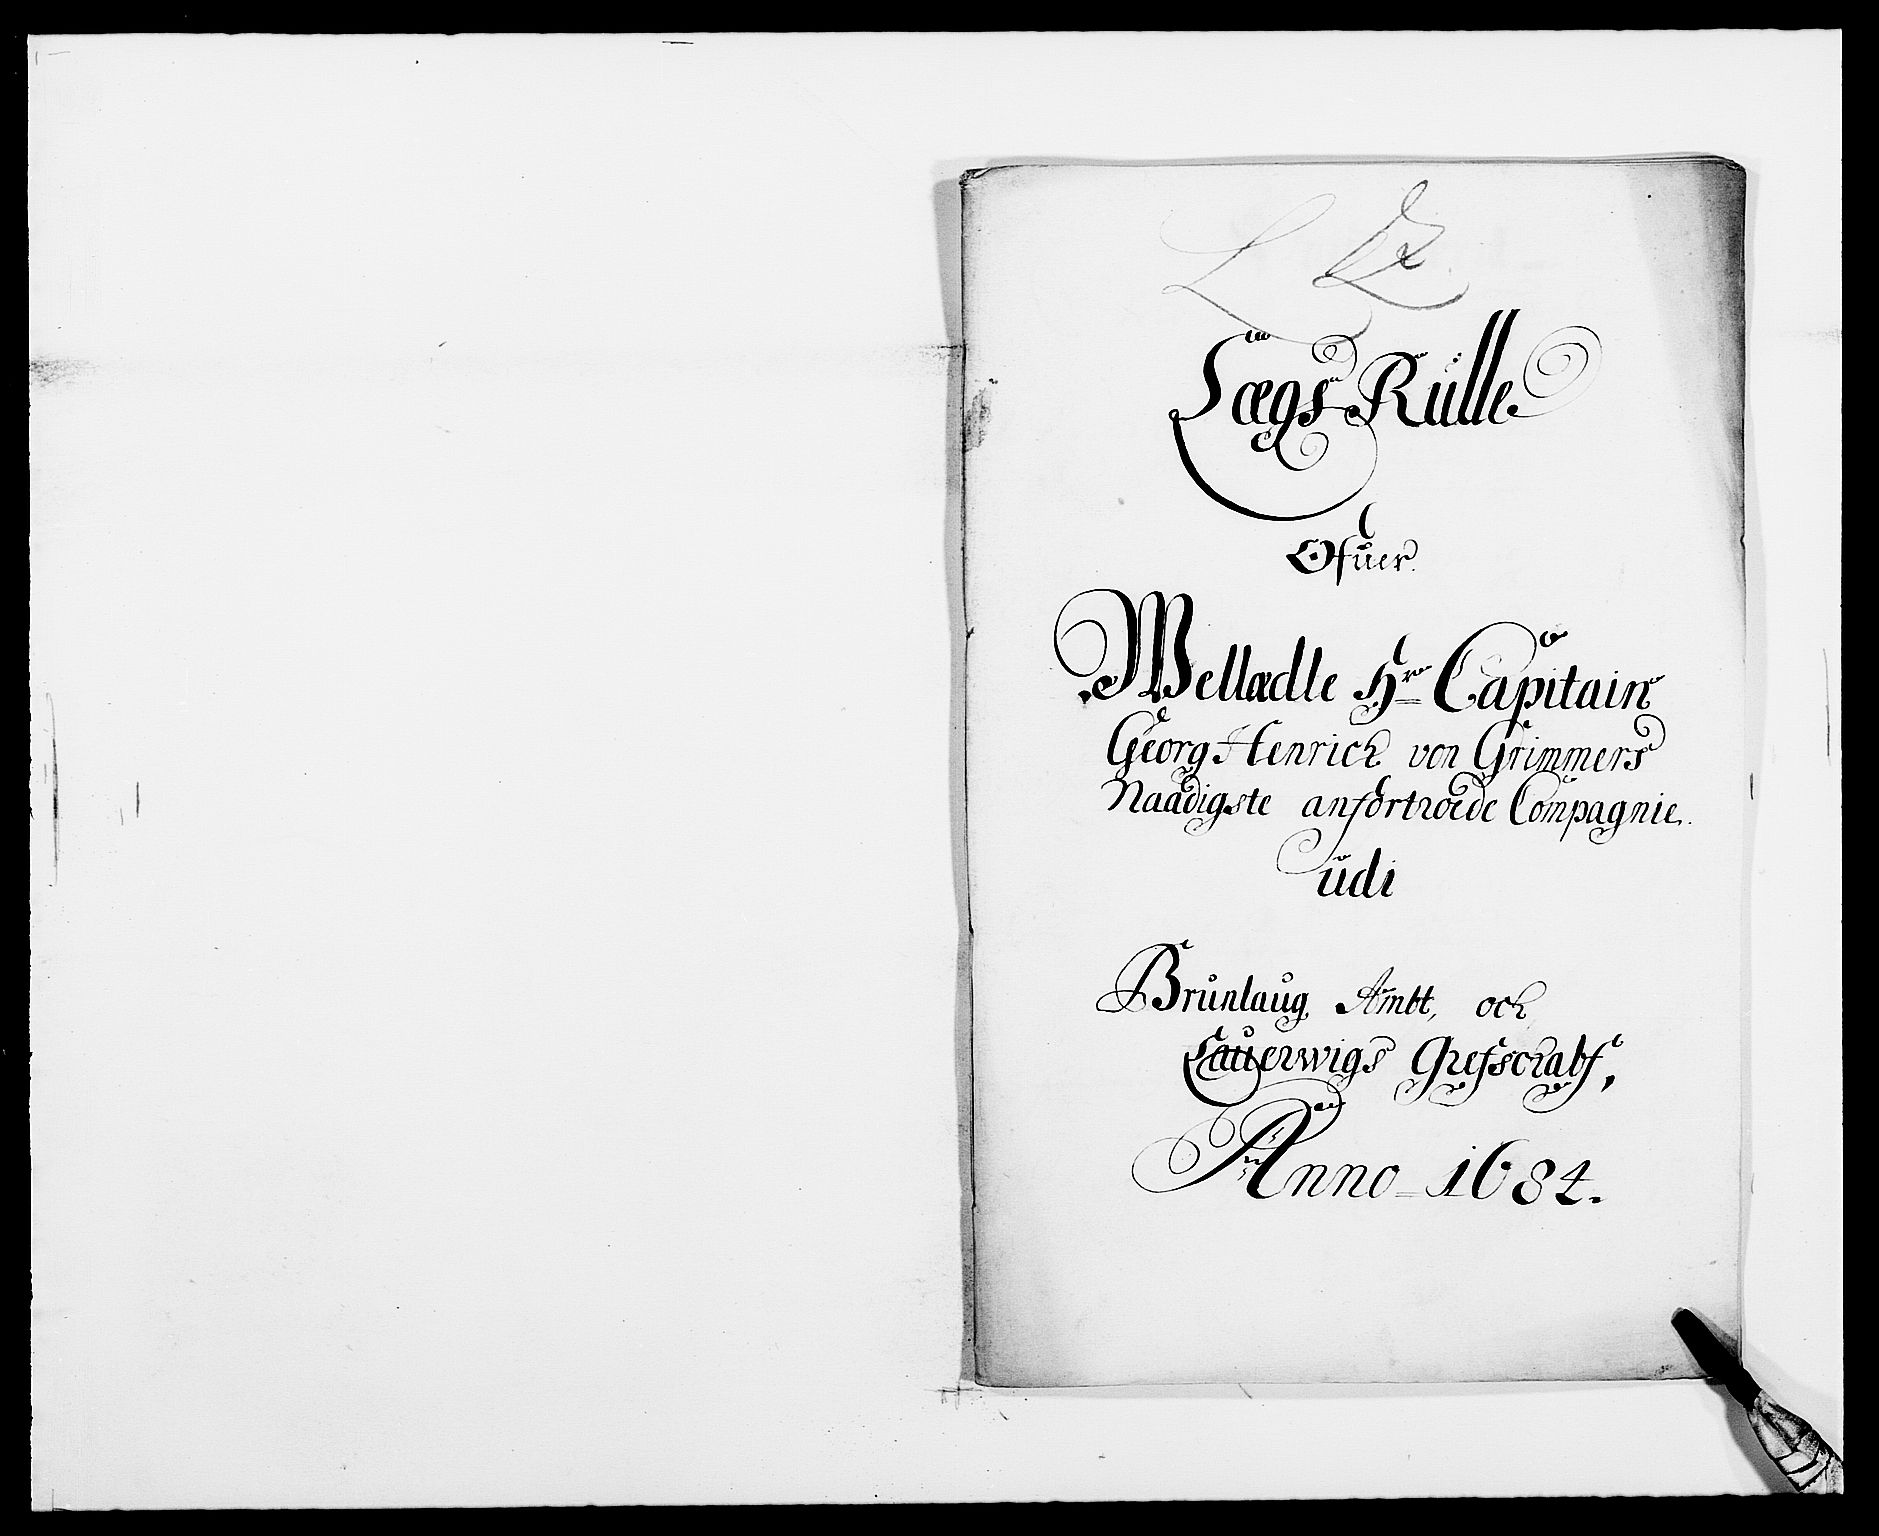 Lægs Rulle
Ofuer
Wellædle Hr Capitain
Georg Henrich von Grimmers
Naadigste anfortroede Compagnie.
udi
Brunlaug Ambt, och
Lauerwigs Grefschabf,
Anno 1684.